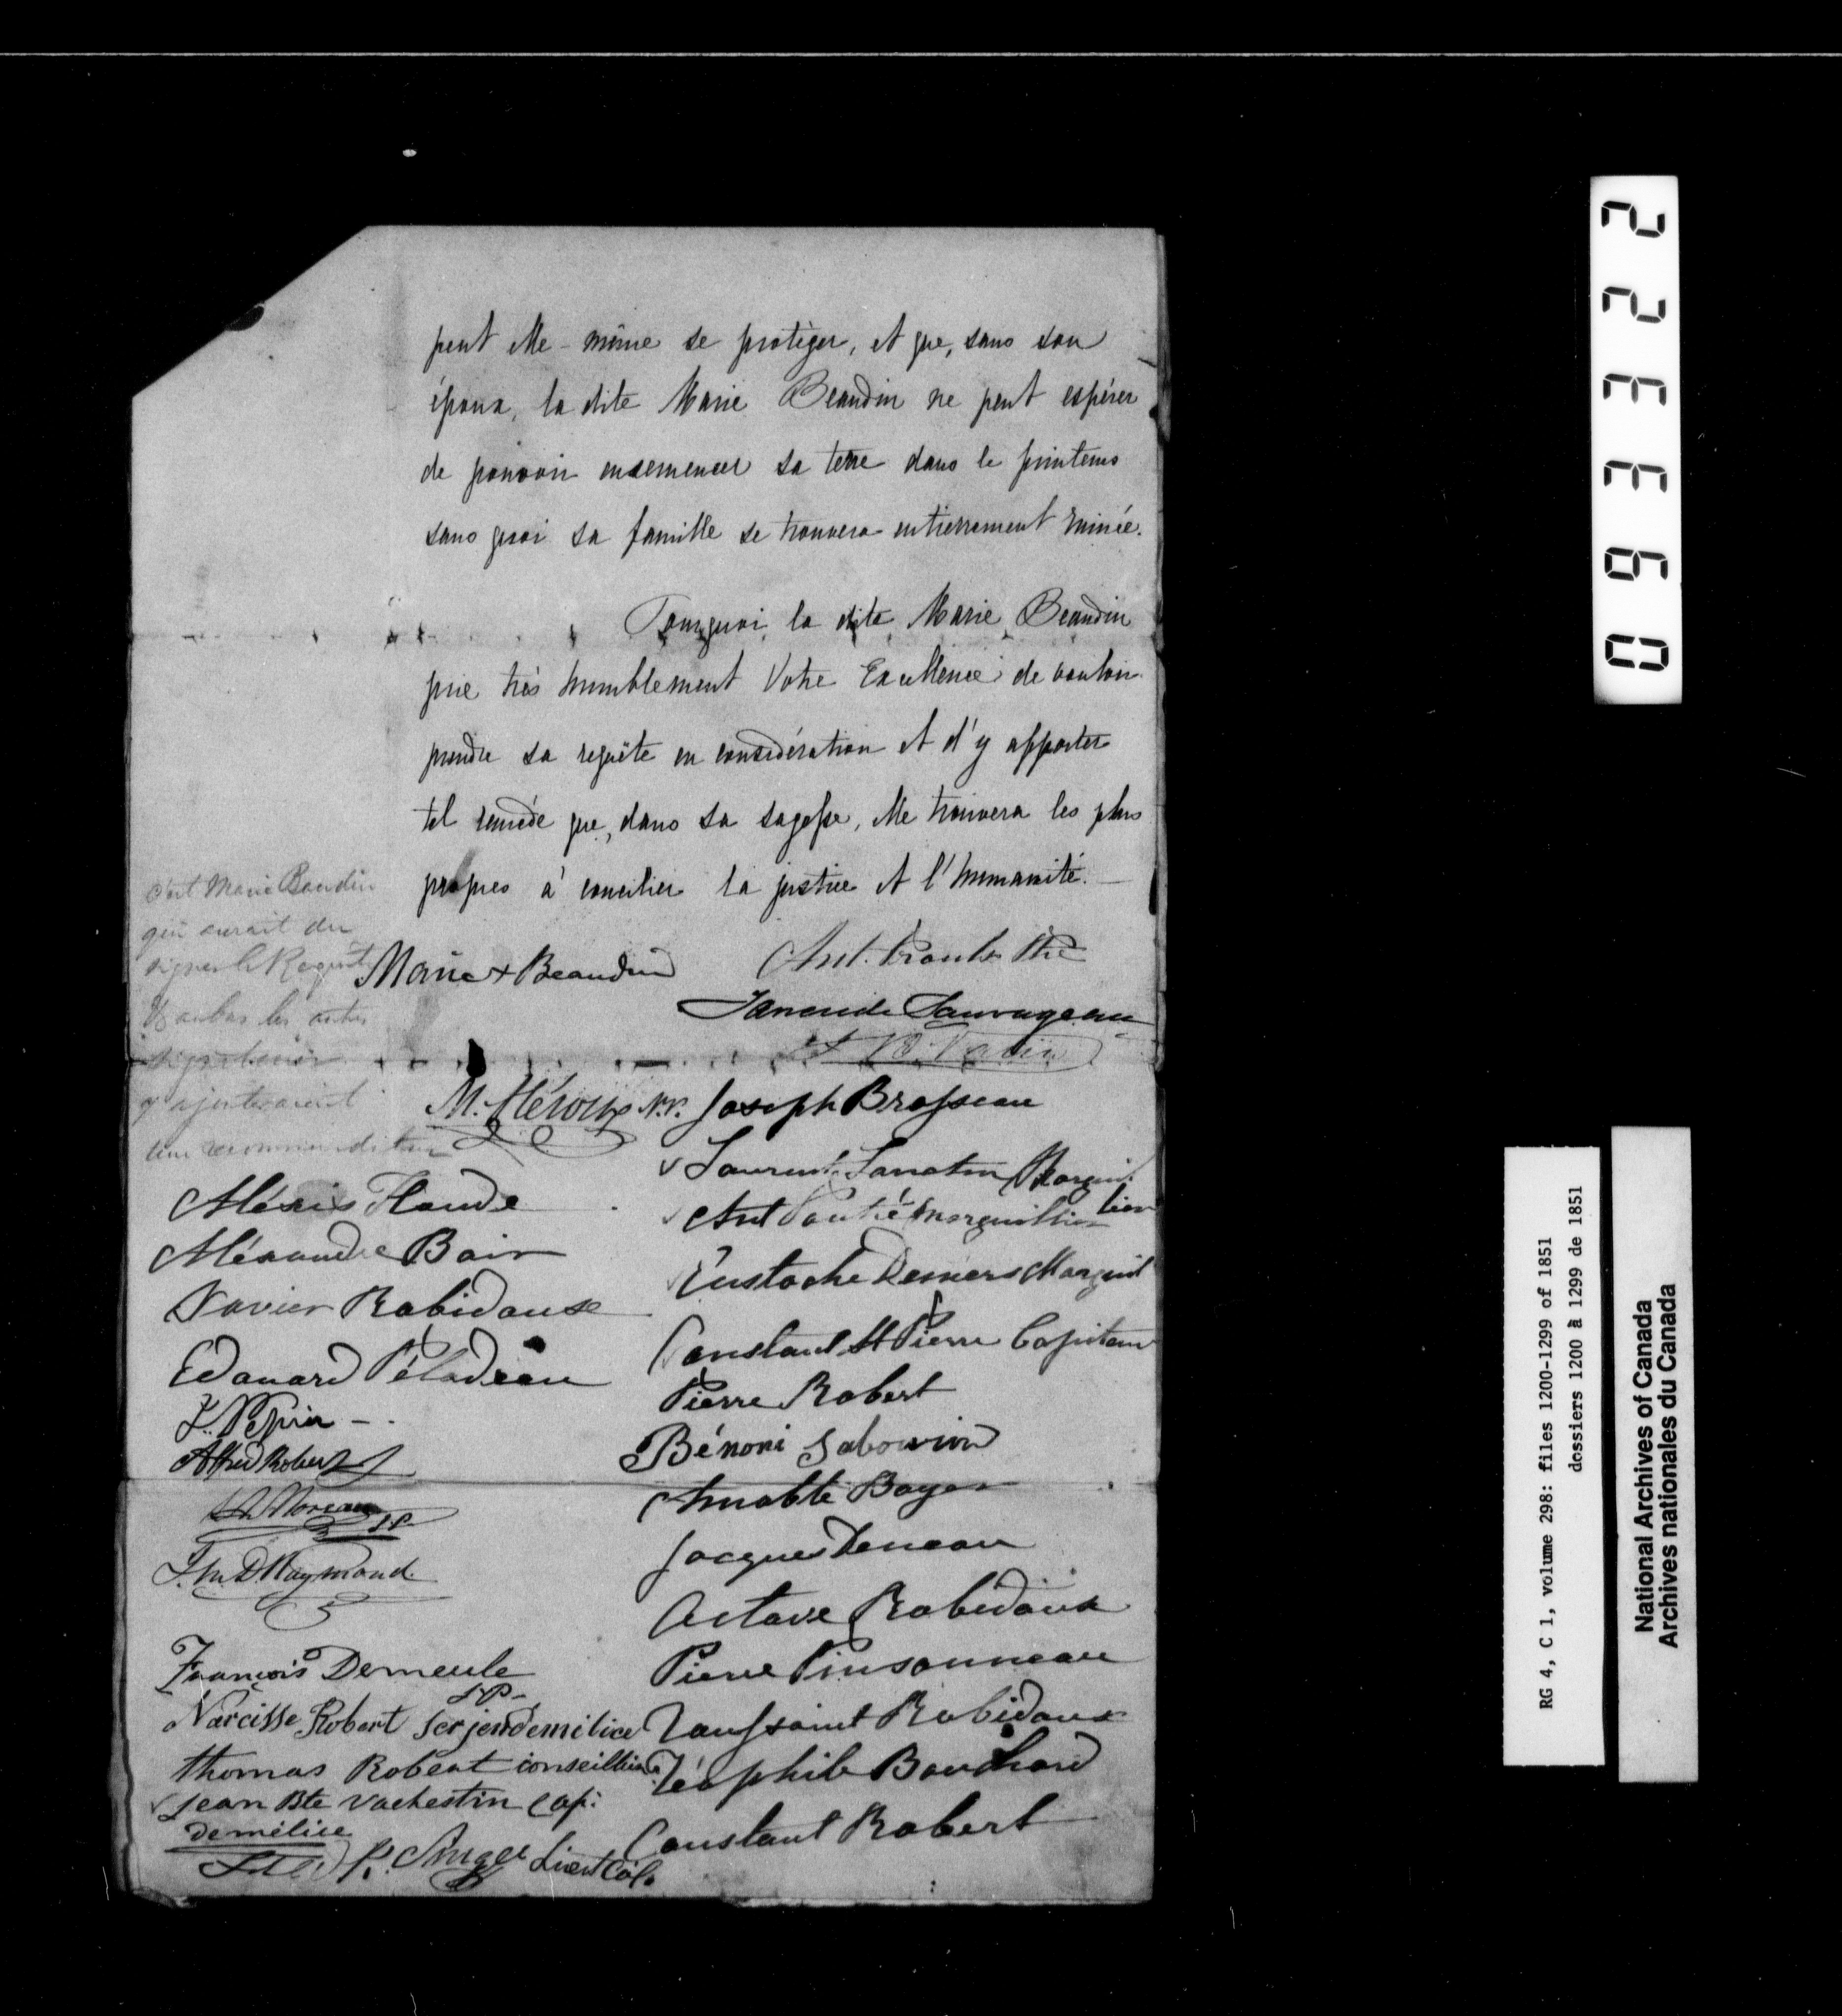 peut elle-même se protéger, et que, sans son
époux, la dite Marie Beaudin ne peut espérer
de pouvoir ensemencer sa terre dans le printems
sans quoi sa famille se trouvera entierrement ruinée.
Pourquoi, la dite Marie Beaudin
prie très humblement Votre Excellence de vouloir
prendre sa requête en considération et d'y apporter
tel remède que, dans sa sagesse, elle trouvera les plus
propres à concilier la justice et l'humanité.
C'est Marie Baudin
qui aurait du
signer la Requete
les autres
y ajouteraient
leur
Marie + Beaudin
Ant. Ptre
Sauvageau
M. Héroux N.P.
Joseph Brosseau
Laurent Marguillier
Ant marguillier
Eustache Demers Marguil
Constant St Pierre Capitaine
Pierre Robert
Bénoni Sabourin
Amable Boyer
Jacques Deneau
Octave Robidoux
Pierre Pinsonneau
Toussaint Robidoux
Téophile Bouchard
Constant Robert
Alexis Plaude
Aléxandre Boir
Xavier Robidoux
Edouard Péladeau
J. Pépin
Alfred Robert
Moreau J.P.
Raymond
François Demeule
J.P.
Narcisse Robert serjen de milice
thomas Robert conseillier
Jean Bte vachestin Cap:
de mélice
Lieut Col.
09 63322
RG 4, C 1, volume 298: files 1200-1299 of 1851
dossiers 1200 à 1299 de 1851
National Archives of Canada
Archives nationales du Canada